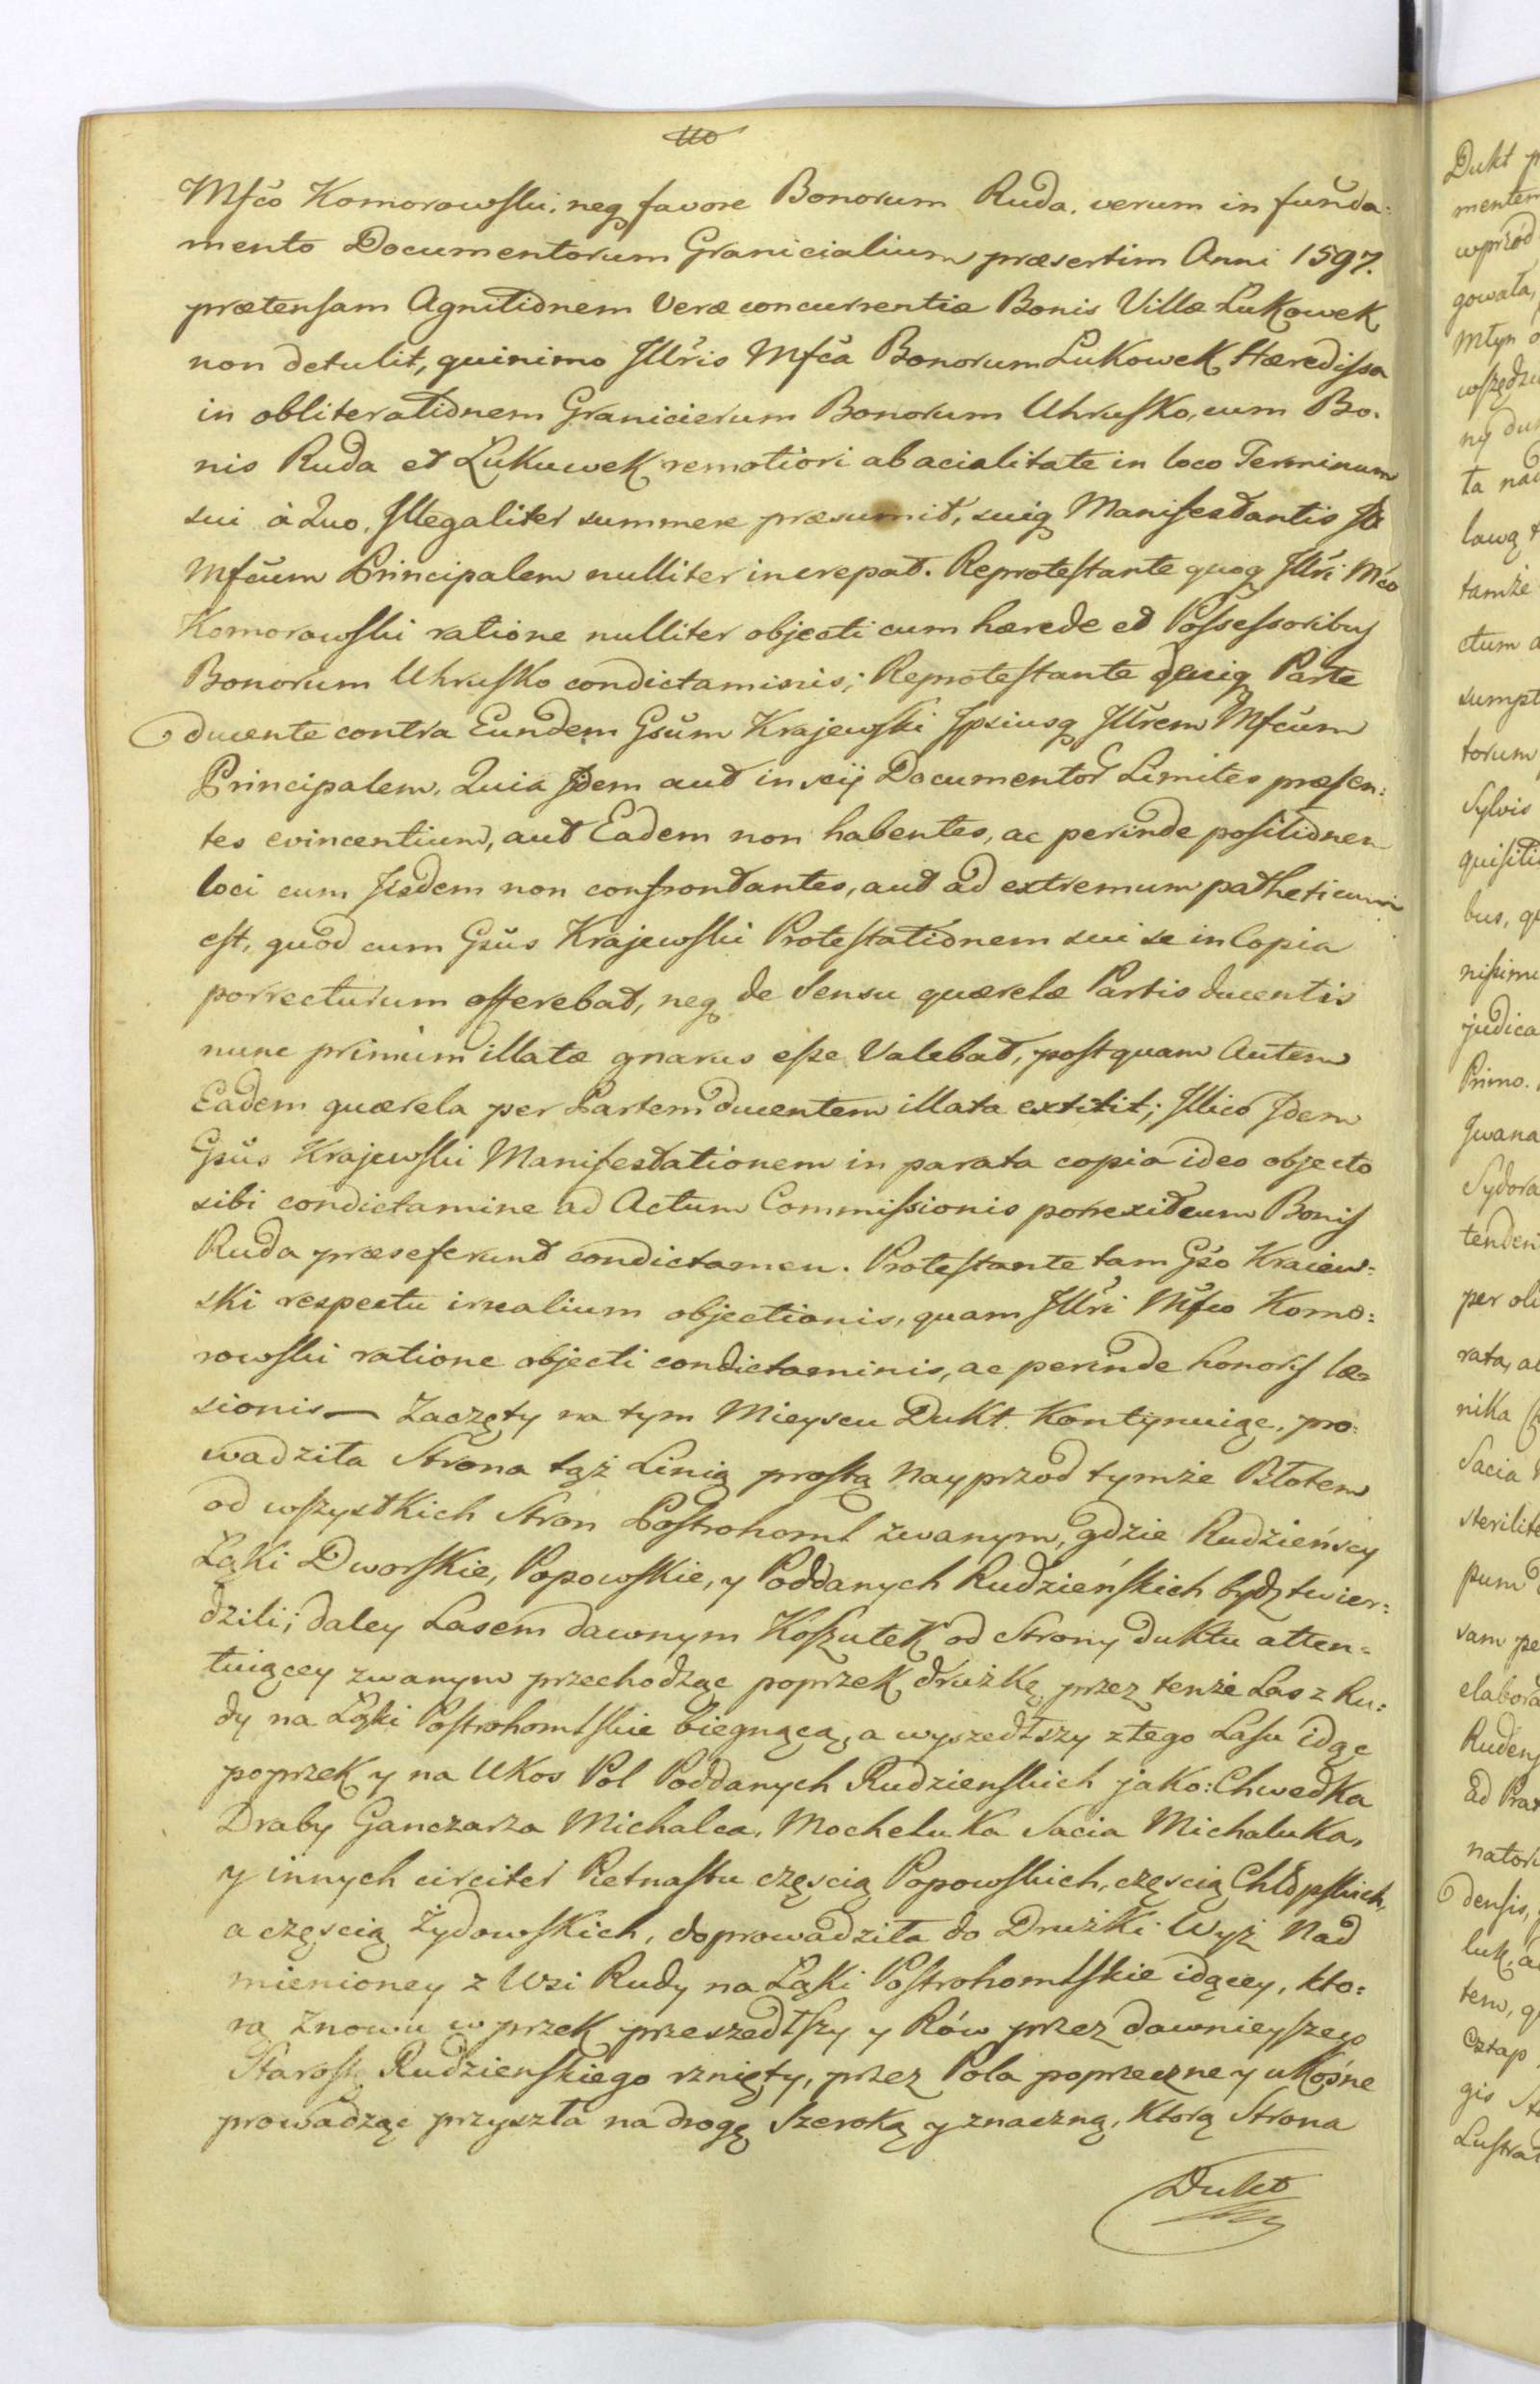 110
Mfco Komorowski, neq favore Bonorum Ruda. verum in funda:
mento Documentorum Granicialium præsertim Anni 1597.
prætensam Agnitionem Veræ concurrentiæ Bonis Villæ Lukowek
non detulit, quinimo Jllris Mfca Bonorum Lukowek Hæredissa
in obliterationem Granicierum Bonorum Uhrusko, cum Bo:
nis Ruda et Lukuwek remotiori ab acialitate in loco Terminum
sui à Quo. Jllegaliter summere præsumit, suiq Manifestantis
Mfcum Principalem nulliter increpat. Reprotestante quoq Jllri Mco
Komorowski ratione nulliter objecti cum hærede et Possessoribus
Bonorum Uhrusko condictaminis; Reprotestante Parte
ducente contra Eundem Gsum Krajewski Jpsiusq Jllrem Mfcum
Principalem. Quia Jidem aut inscij Documentor Limites præsen:
tes evincentium, aut Eadem non habentes, ac perinde positionem
loci cum Jisdem non confrontantes, aut ad extremum patheticum
est, quod cum Gsus Krajewski Protestationem sui se in Copia
porrecturum offerebat, neq de Sensu quærelæ Partis ducentis
nunc primum illatæ gnarus esse Valebat, postquam Autem
Eadem quærela per Partem ducentem illata extitit; Jllico Jdem
Gsus Krajewski Manifestationem in parata copia ideo objecto
sibi condictamine ad Actum Commissionis porrexit cum Bonis
Ruda præseferunt condictamen. Protestante tam Gso Kraiew:
ski respectu irrealium objectionis, quam Jllri Mfco Komo:
rowski ratione objecti condictaminis, ac perinde honoris læ=
sionis— Zaczęty na tym Mieyscu Dukt. Kontynuiąc, pro:
wadziła Strona tąż Linią prostą Nayprzod tymże Błotem
od wszystkich Stron Postrohoml zwanym, gdzie Rudzieńscy
Ląki Dworskie, Popowskie, y Poddanych Rudzieńskich bydź twier:
dzili; daley Lasem dawnym Koszutek od Strony duktu atten=
tuiącey zwanym przechodząc poprzek drużkę przez tenże Las z Ru:
dy na Ląki Postrohomlskie biegnącą, a wyszedłszy z tego Lasu idąc
poprzek y na Ukos Pol Poddanych Rudzienskich jako: Chwedka
Draby Ganczarza Michalca, Mocheluka Sacia Michaluka,
y innych circiter Pietnastu częscią Popowskich, częscią Chłopskich,
a częscią Żydowskich, doprowadziła do Drużki Wyż Nad
mienioney z Wsi Rudy na Ląki Postrohomlskie idącey, kto:
rą Znowu w przek przeszedłszy y Rów przez dawnieyszego
Starostę Rudzienskiego rznięty, przez Pola poprzeczne y ukośne
prowadząc przyszła na drogę Szeroką y znaczną, Ktorą Strona
Dukt
Dukt
wprzód
gowała,
Młyn
ta nad
tamże
ctum
sumpt
torum
Sylvis
bus,
judica
Primo.
Jwana
Sydora
per
rata,
nika
Sacia
elabora
ad
densis,
gis
Lustrat